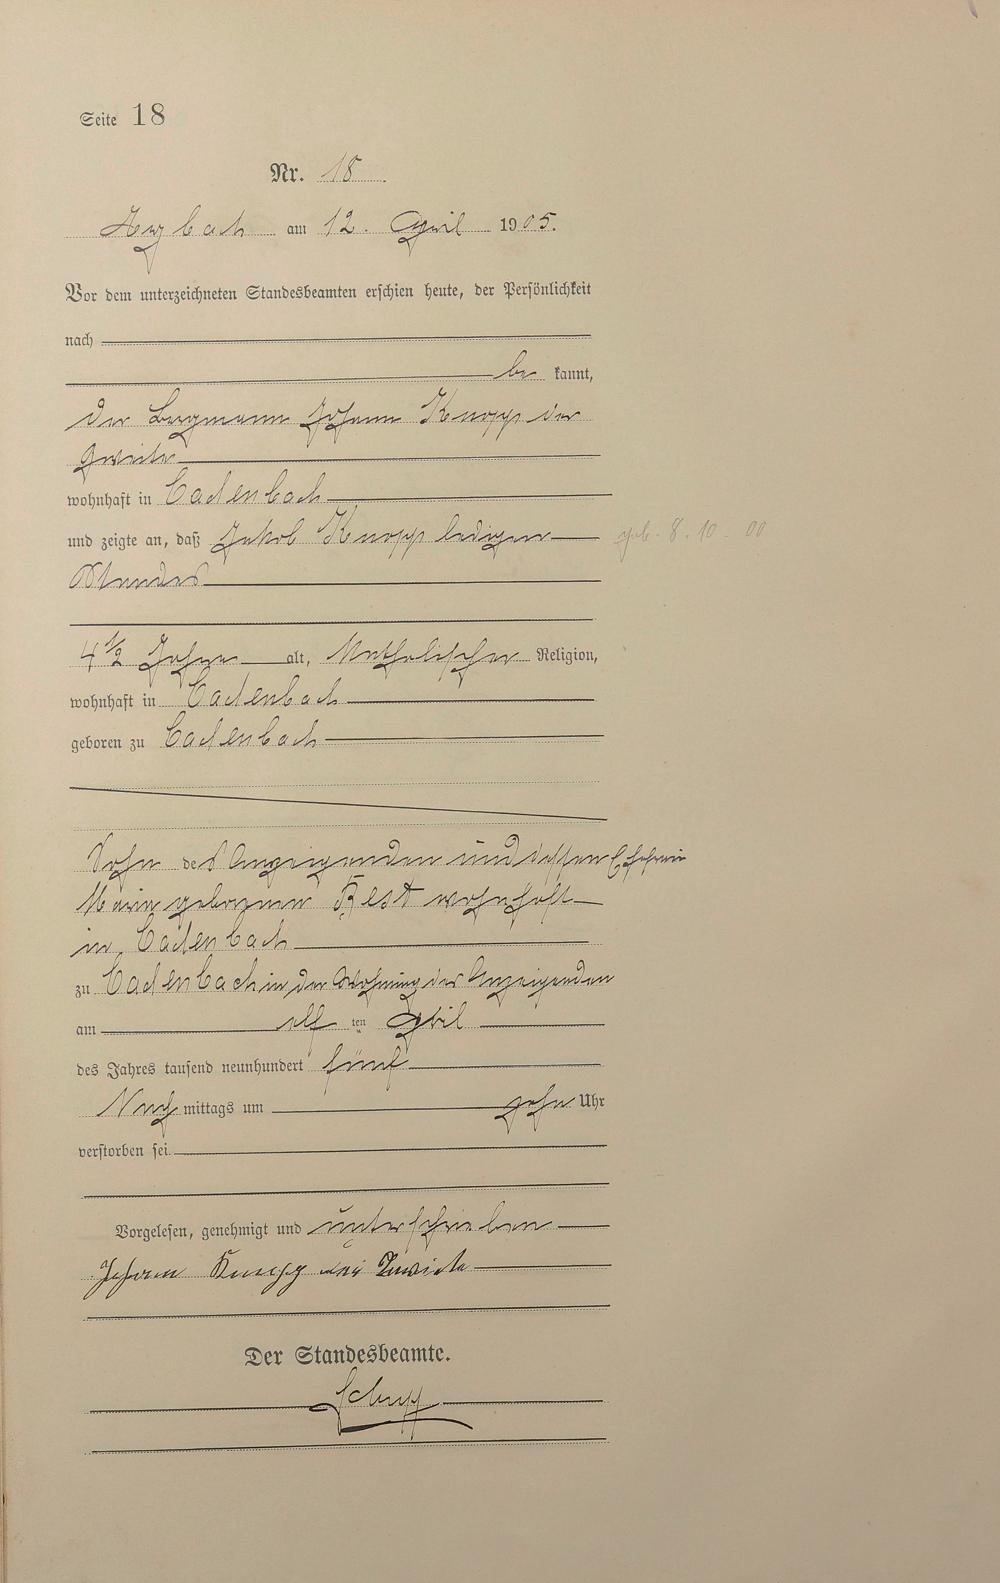 Seite 18
Nr. 18
Arzbach am 12. April 1905.
Vor dem unterzeichneten Standesbeamten erschien heute, der Persönlichkeit
nach
be kannt,
der Bergmann Johann Knopp der
Zweite
wohnhaft in Cadenbach
und zeigte an, daß Jakob Knopp ledigen
geb. 8. 10. 00
Standes
4 1/2 Jahre alt, katholischer Religion,
wohnhaft in Cadenbach
geboren zu Cadenbach
Sohn des Anzeigenden und dessen Ehefrau
Maria geborenen Best wohnhaft
in Cadenbach
zu Cadenbach in der Wohnung des Anzeigenden
am elf ten April
des Jahres tausend neunhundert fünf
Nach mittags um zehn Uhr
verstorben sei.
Vorgelesen, genehmigt und unterschrieben
Johann Knopp der Zweite
Der Standesbeamte.